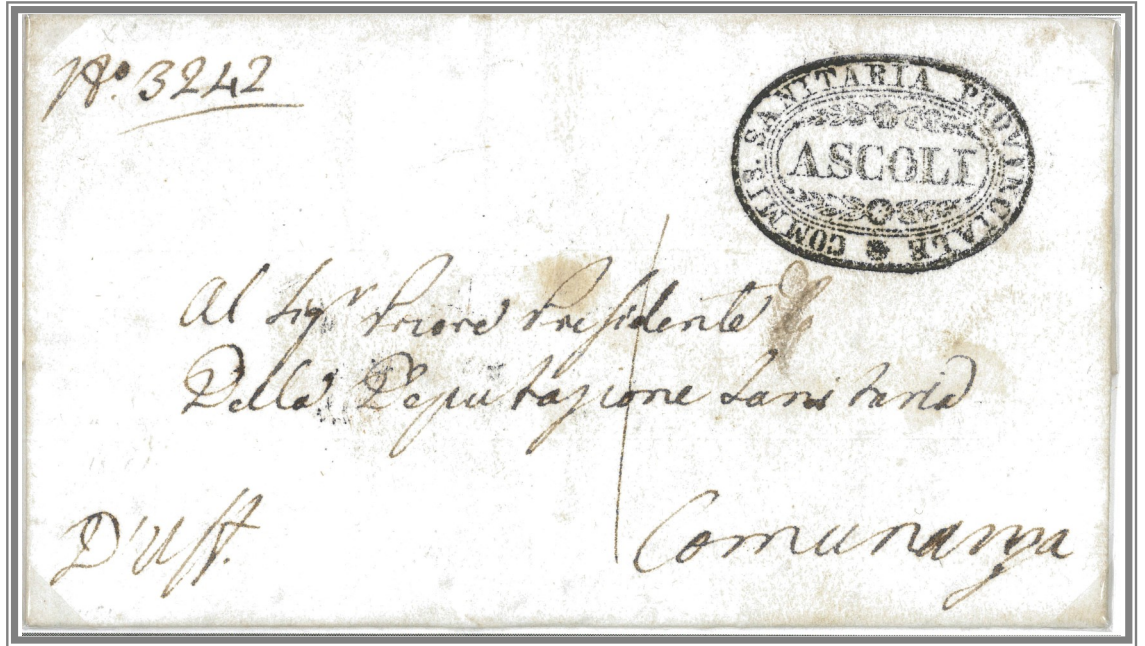 No. 3242
COMMIS. SANITARIA PROVINCIALE
ASCOLI
Al Sigr Priore Presidente
Della Deputazione Sanitaria
D'Uff.
Comunanza